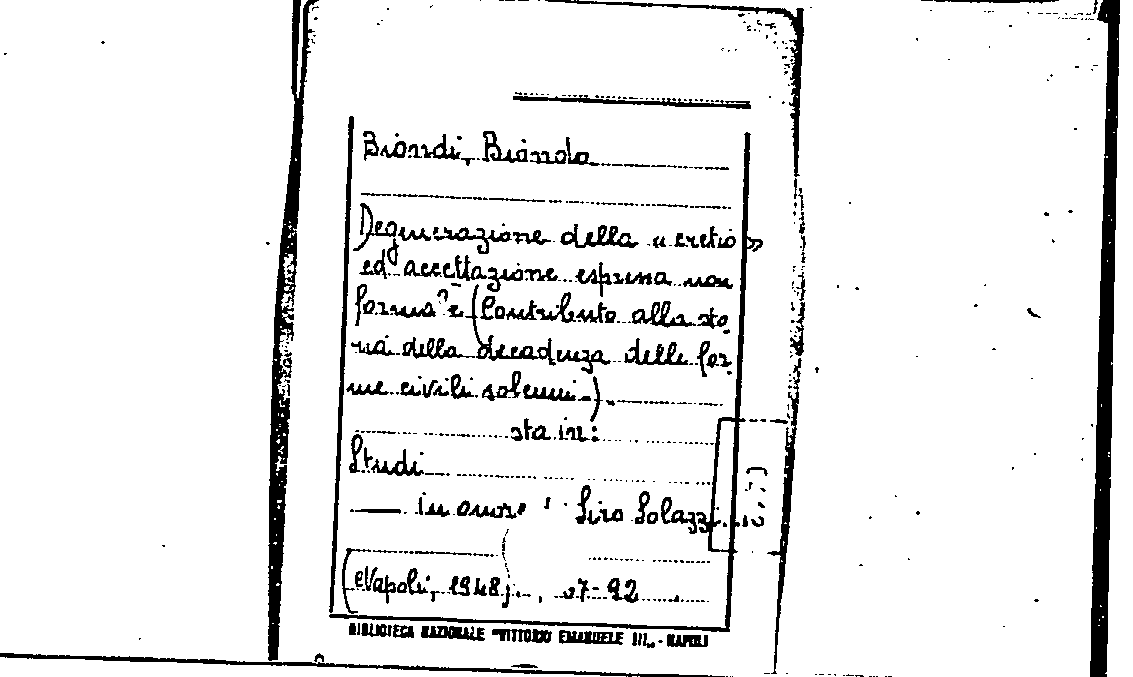 Biondi, Biondo
Degenerazione della « cretio »
ed accettazione espressa non
formale (Contributo alla sto-
ria della decadenza delle for-
me civili solenni).
sta in:
Studi
— in onore Siro Solazzi
(Napoli, 1948), 7-92
BIBLIOTECA NAZIONALE "VITTORIO EMANUELE III„ - NAPOLI